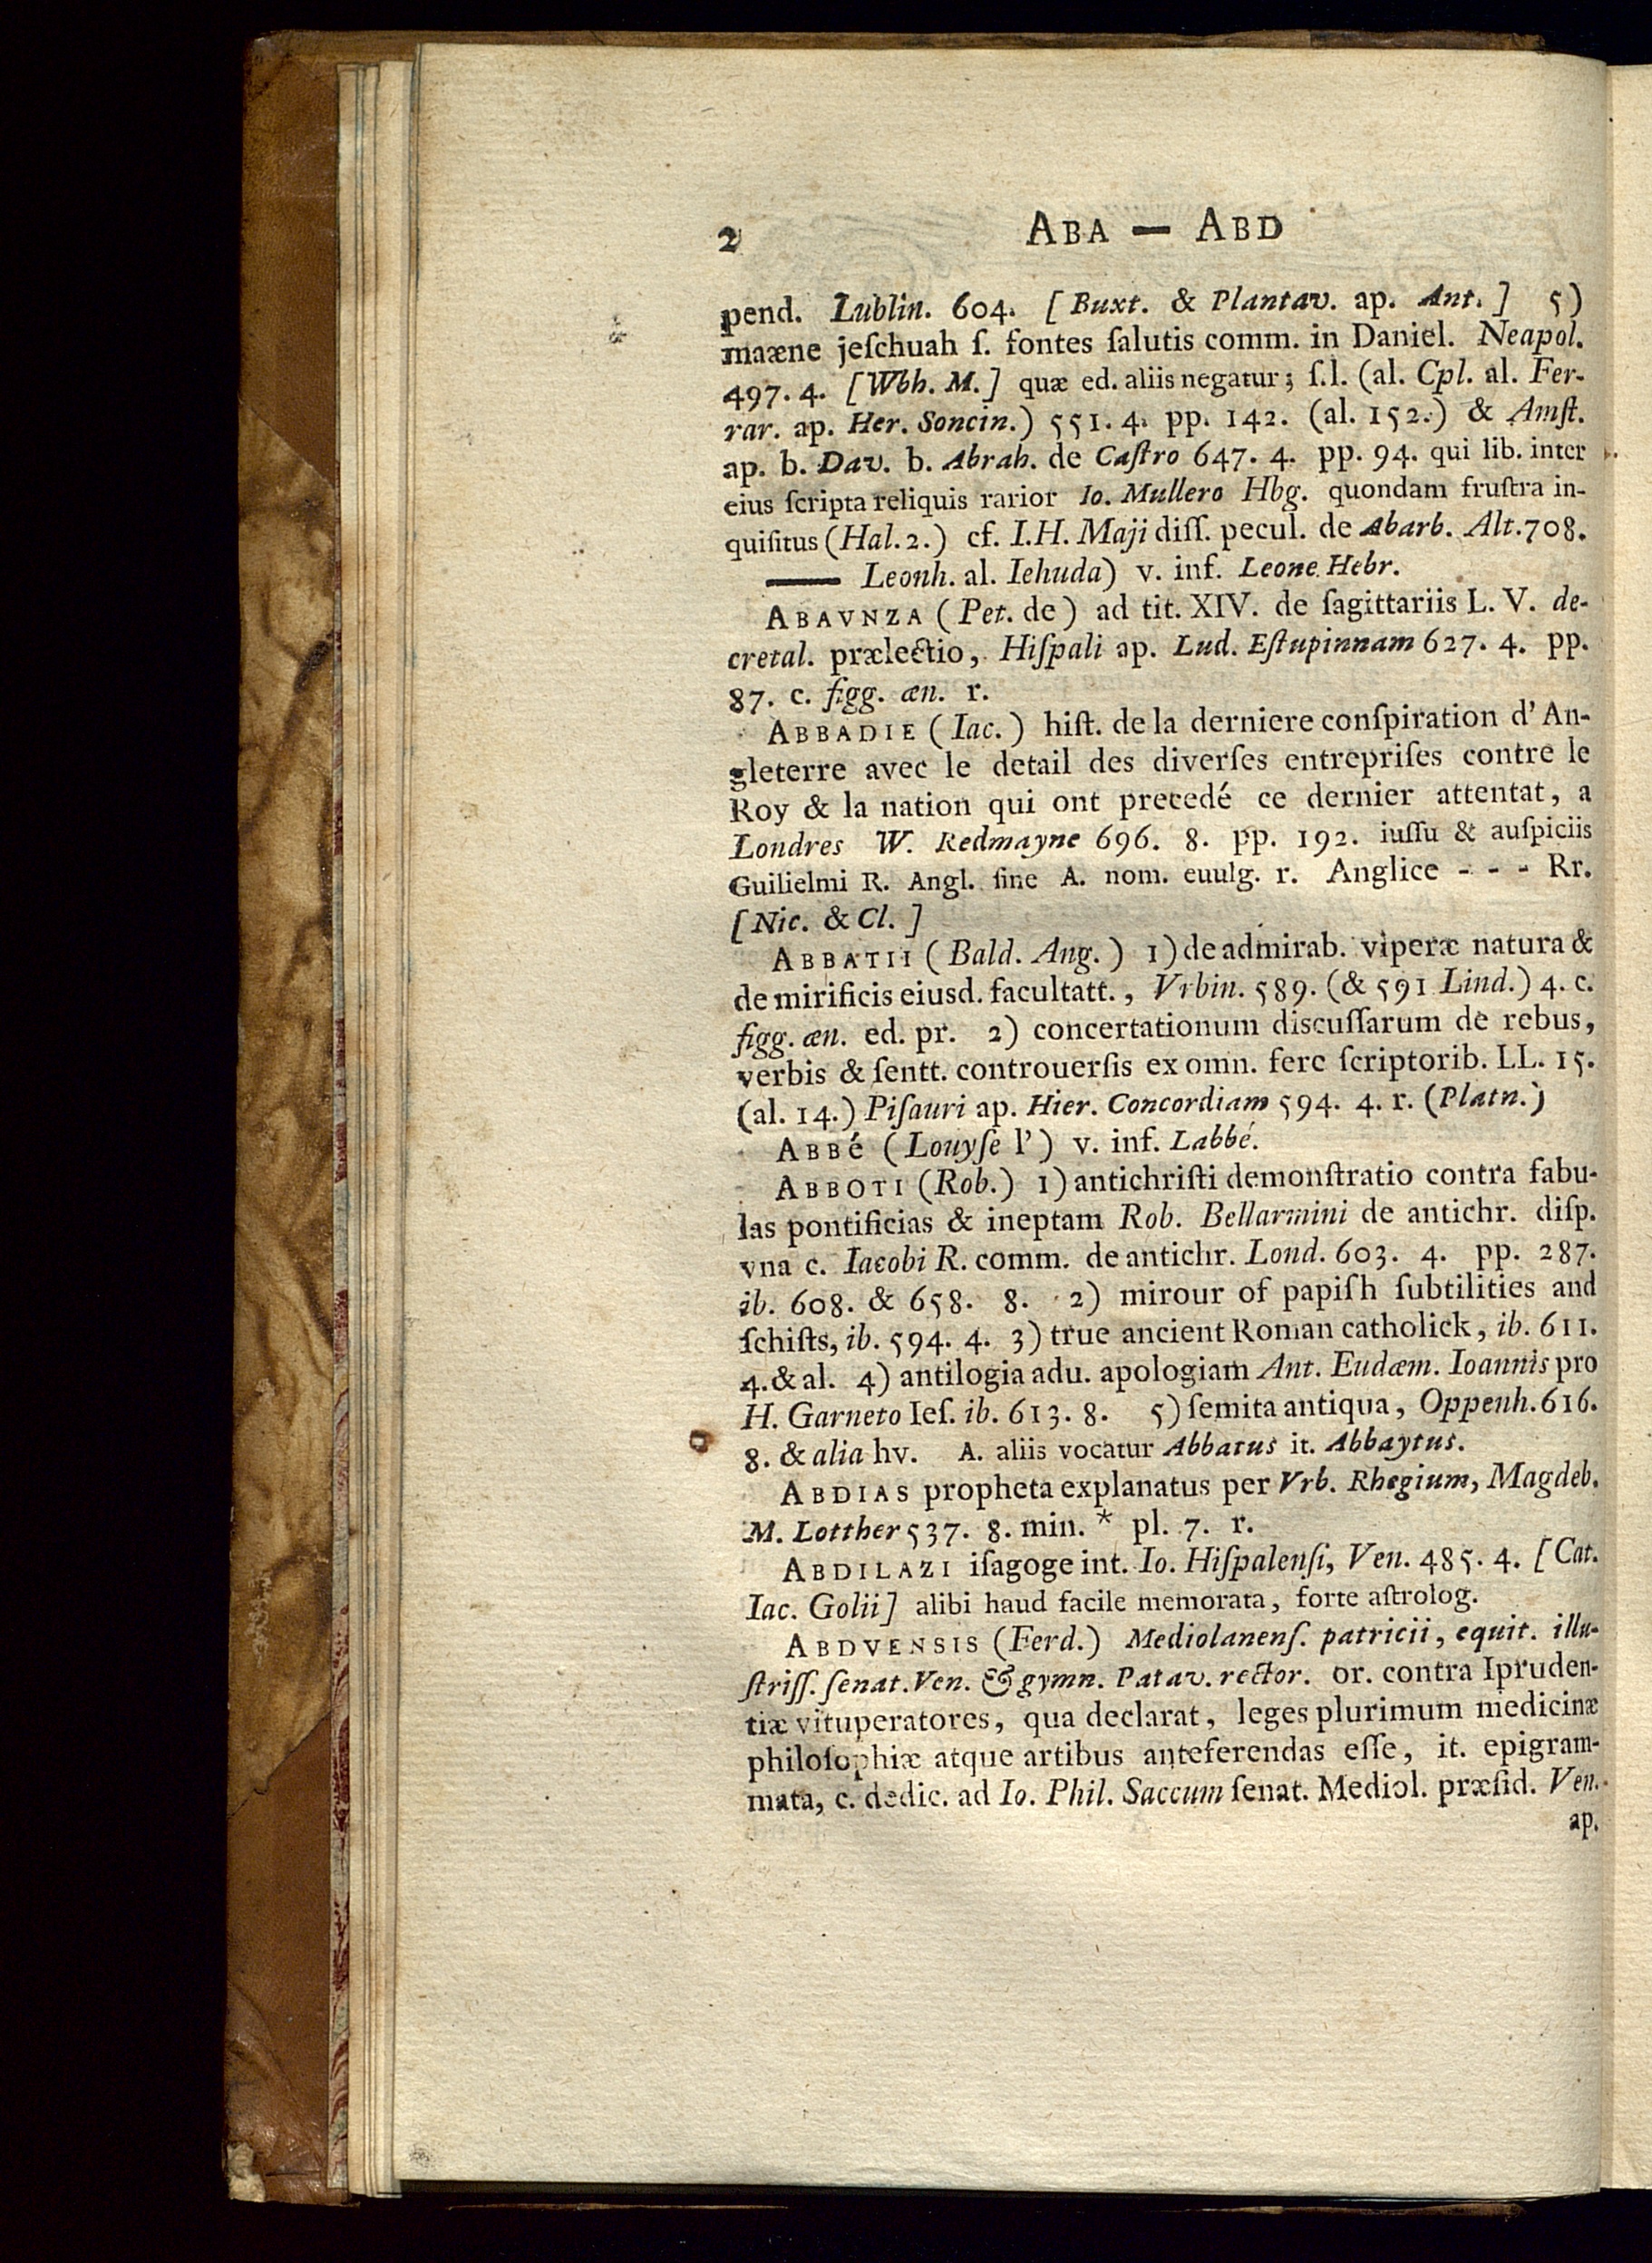 2 ABA — ABD
pend. Lublin. 604. [Buxt. & Plantav. ap. Ant.] 5)
maæne jeſchuah ſ. fontes ſalutis comm. in Daniel. Neapol.
497. 4. [Wbh. M.] quæ ed. aliis negatur; ſ.l. (al. Cpl. al. Fer-
rar. ap. Her. Soncin.) 551. 4. pp. 142. (al. 152.) & Amſt.
ap. b. Dav. b. Abrah. de Caſtro 647. 4. pp. 94. qui lib. inter
eius ſcripta reliquis rarior Io. Mullero Hbg. quondam fruſtra in-
quiſitus (Hal. 2.) cf. I.H. Maji diſſ. pecul. de Abarb. Alt. 708.
—— Leonh. al. Iehuda) v. inf. Leone Hebr.
ABAVNZA (Pet. de) ad tit. XIV. de ſagittariis L. V. de-
cretal. prælectio, Hiſpali ap. Lud. Eſtupinnam 627. 4. pp.
87. c. figg. æn. r.
ABBADIE (Iac.) hiſt. de la derniere conſpiration d' An-
gleterre avec le detail des diverſes entrepriſes contre le
Roy & la nation qui ont precedé ce dernier attentat, a
Londres W. Redmayne 696. 8. pp. 192. iuſſu & auſpiciis
Guilielmi R. Angl. ſine A. nom. euulg. r. Anglice - - - Rr.
[Nic. & Cl.]
ABBATII (Bald. Ang.) 1) de admirab. viperæ natura &
de mirificis eiusd. facultatt., Vrbin. 589. (& 591 Lind.) 4. c.
figg. æn. ed. pr. 2) concertationum discuſſarum de rebus,
verbis & ſentt. controuerſis ex omn. fere ſcriptorib. LL. 15.
(al. 14.) Piſauri ap. Hier. Concordiam 594. 4. r. (Platn.)
ABBé (Louyſe l') v. inf. Labbé.
ABBOTI (Rob.) 1) antichriſti demonſtratio contra fabu-
las pontificias & ineptam Rob. Bellarmini de antichr. diſp.
vna c. Iacobi R. comm. de antichr. Lond. 603. 4. pp. 287.
ib. 608. & 658. 8. 2) mirour of papiſh ſubtilities and
ſchiſts, ib. 594. 4. 3) true ancient Roman catholick, ib. 611.
4. & al. 4) antilogia adu. apologiam Ant. Eudæm. Ioannis pro
H. Garneto Ieſ. ib. 613. 8. 5) ſemita antiqua, Oppenh. 616.
8. & alia hv. A. aliis vocatur Abbatus it. Abbaytus.
ABDIAS propheta explanatus per Vrb. Rhegium, Magdeb.
M. Lotther 537. 8. min. * pl. 7. r.
ABDILAZI iſagoge int. Io. Hiſpalenſi, Ven. 485. 4. [Cat.
Iac. Golii] alibi haud facile memorata, forte aſtrolog.
ABDVENSIS (Ferd.) Mediolanenſ. patricii, equit. illu-
ſtriſſ. ſenat. Ven. & gymn. Patav. rector. or. contra Ipruden-
tiæ vituperatores, qua declarat, leges plurimum medicinæ
philoſophiæ atque artibus anteferendas eſſe, it. epigram-
mata, c. dedic. ad Io. Phil. Saccum ſenat. Mediol. præſid. Ven.
ap.